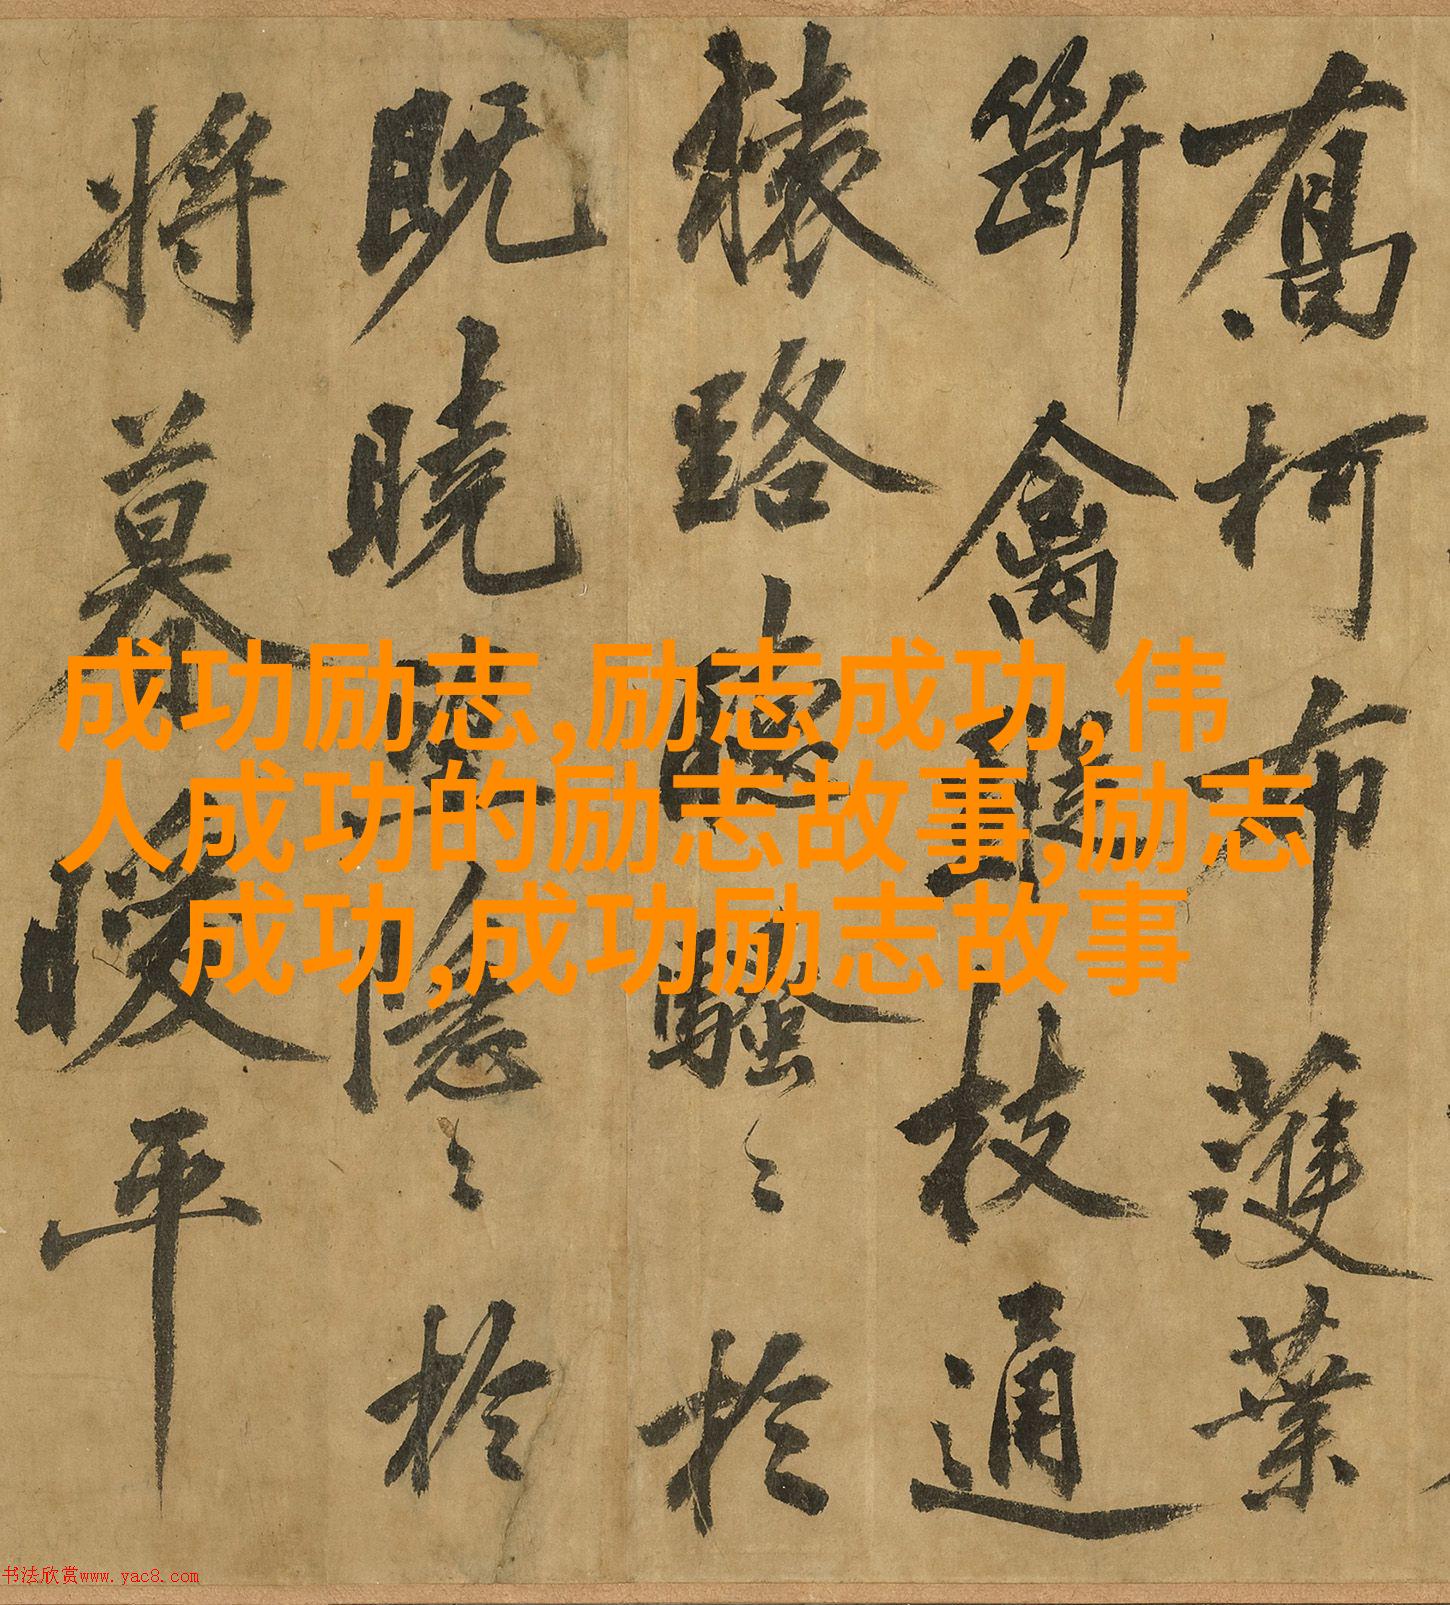 喬柯布濩葉
斷禽蹤枝通
猿路聽騷〻於
既曉望隱〻於
將暮暖平
成功励志,励志成功,伟
人成功的励志故事,励志
成功,成功励志故事
书法欣赏www.yac8.com